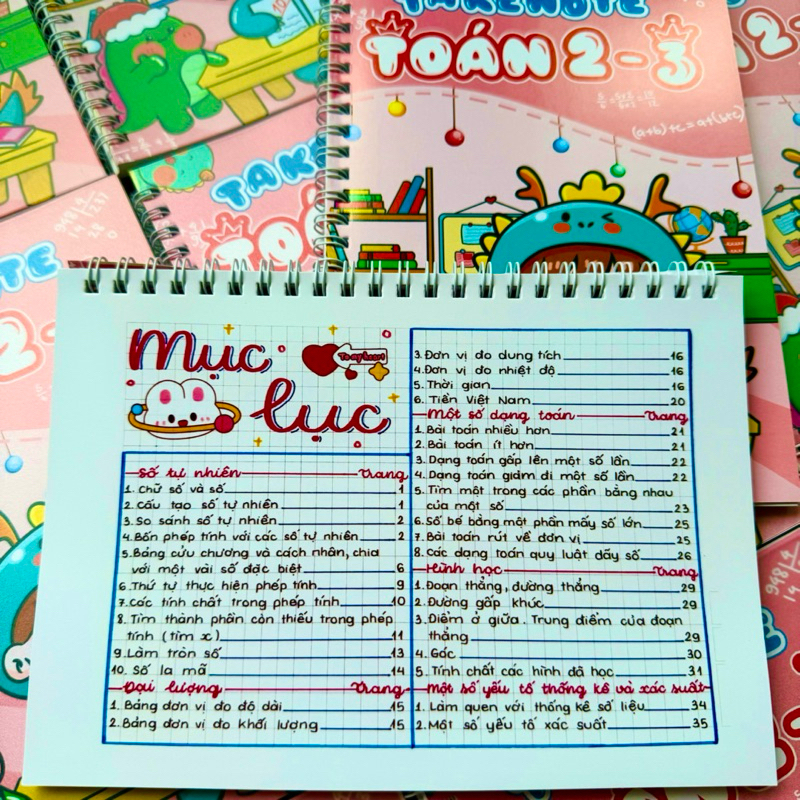 TAKENOTE
TOÁN 2-3
(a+b)+c=a+(b+c)
TAKE
TOÁ
Mục
lục
To my heart
Số tự nhiên Trang
1. Chữ số và số 1
2. Cấu tạo số tự nhiên 1
3. So sánh số tự nhiên 2
4. Bốn phép tính với các số tự nhiên 2
5. Bảng cửu chương và cách nhân, chia
với một vài số đặc biệt 6
6. Thứ tự thực hiện phép tính 9
7. Các tính chất trong phép tính 10
8. Tìm thành phần còn thiếu trong phép
tính (tìm x) 11
9. Làm tròn số 13
10. Số la mã 14
Đại lượng Trang
1. Bảng đơn vị đo độ dài 15
2. Bảng đơn vị đo khối lượng 15
3. Đơn vị đo dung tích 16
4. Đơn vị đo nhiệt độ 16
5. Thời gian 16
6. Tiền Việt Nam 20
Một số dạng toán Trang
1. Bài toán nhiều hơn 21
2. Bài toán ít hơn 21
3. Dạng toán gấp lên một số lần 22
4. Dạng toán giảm đi một số lần 22
5. Tìm một trong các phần bằng nhau
của một số 23
6. Số bé bằng một phần mấy số lớn 25
7. Bài toán rút về đơn vị 25
8. Các dạng toán quy luật dãy số 26
Hình học Trang
1. Đoạn thẳng, đường thẳng 29
2. Đường gấp khúc 29
3. Điểm ở giữa. Trung điểm của đoạn
thẳng 29
4. Góc 30
5. Tính chất các hình đã học 31
Một số yếu tố thống kê và xác suất
1. Làm quen với thống kê số liệu 34
2. Một số yếu tố xác suất 35